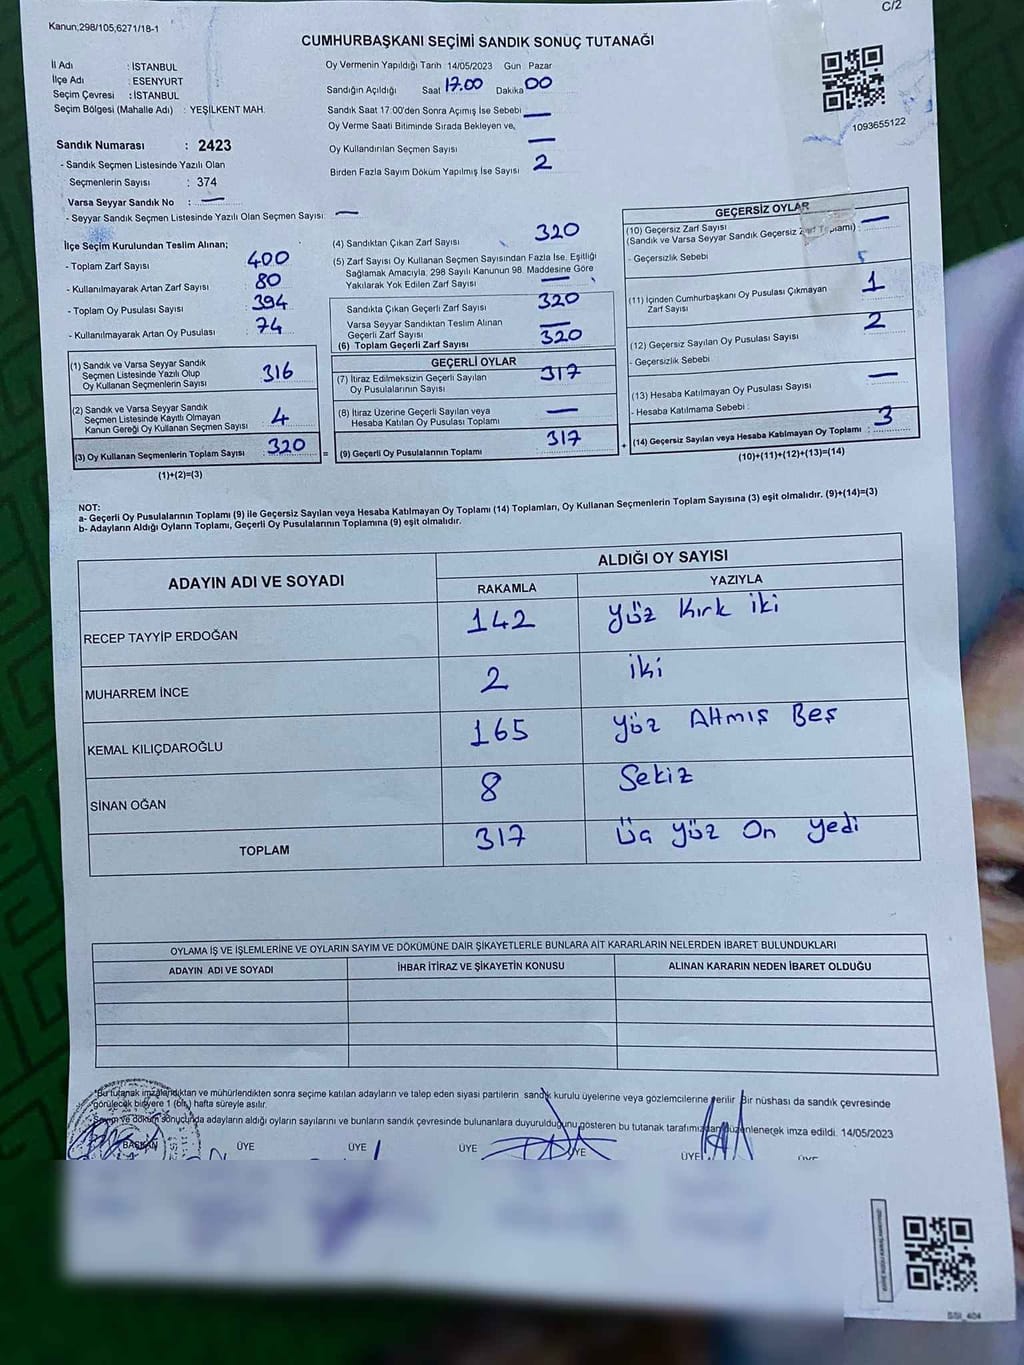 Kanun;298/105,6271/18-1
C/2
CUMHURBAŞKANI SEÇİMİ SANDIK SONUÇ TUTANAĞI
İl Adı : İSTANBUL
İlçe Adı : ESENYURT
Seçim Çevresi : İSTANBUL
Seçim Bölgesi (Mahalle Adı) : YEŞİLKENT MAH.
Sandık Numarası : 2423
- Sandık Seçmen Listesinde Yazılı Olan
Seçmenlerin Sayısı : 374
Varsa Seyyar Sandık No : —
- Seyyar Sandık Seçmen Listesinde Yazılı Olan Seçmen Sayısı: —
Oy Vermenin Yapıldığı Tarih :14/05/2023 Gün : Pazar
Sandığın Açıldığı Saat 17.00 Dakika 00
Sandık Saat 17:00'den Sonra Açımış İse Sebebi —
Oy Verme Saati Bitiminde Sırada Bekleyen ve,
Oy Kullandırılan Seçmen Sayısı —
Birden Fazla Sayım Döküm Yapılmış İse Sayısı 2
1093655122
İlçe Seçim Kurulundan Teslim Alınan;
- Toplam Zarf Sayısı 400
- Kullanılmayarak Artan Zarf Sayısı 80
- Toplam Oy Pusulası Sayısı 394
- Kullanılmayarak Artan Oy Pusulası 74
(1) Sandık ve Varsa Seyyar Sandık
Seçmen Listesinde Yazılı Olup
Oy Kullanan Seçmenlerin Sayısı 316
(2) Sandık ve Varsa Seyyar Sandık
Seçmen Listesinde Kayıtlı Olmayan
Kanun Gereği Oy Kullanan Seçmen Sayısı 4
(3) Oy Kullanan Seçmenlerin Toplam Sayısı : 320 =
(1)+(2)=(3)
(4) Sandıktan Çıkan Zarf Sayısı 320
(5) Zarf Sayısı Oy Kullanan Seçmen Sayısından Fazla İse, Eşitliği
Sağlamak Amacıyla, 298 Sayılı Kanunun 98. Maddesine Göre
Yakılarak Yok Edilen Zarf Sayısı —
Sandıkta Çıkan Geçerli Zarf Sayısı 320
Varsa Seyyar Sandıktan Teslim Alınan
Geçerli Zarf Sayısı —
(6) Toplam Geçerli Zarf Sayısı 320
GEÇERLİ OYLAR
(7) İtiraz Edilmeksizin Geçerli Sayılan
Oy Pusulalarının Sayısı 317
(8) İtiraz Üzerine Geçerli Sayılan veya
Hesaba Katılan Oy Pusulası Toplamı —
(9) Geçerli Oy Pusulalarının Toplamı 317 +
GEÇERSİZ OYLAR
(10) Geçersiz Zarf Sayısı —
(Sandık ve Varsa Seyyar Sandık Geçersiz Zarf Toplamı) :
- Geçersizlik Sebebi
(11) İçinden Cumhurbaşkanı Oy Pusulası Çıkmayan
Zarf Sayısı 1
(12) Geçersiz Sayılan Oy Pusulası Sayısı 2
- Geçersizlik Sebebi
(13) Hesaba Katılmayan Oy Pusulası Sayısı —
- Hesaba Katılmama Sebebi :
(14) Geçersiz Sayılan veya Hesaba Katılmayan Oy Toplamı : 3
(10)+(11)+(12)+(13)=(14)
NOT:
a- Geçerli Oy Pusulalarının Toplamı (9) ile Geçersiz Sayılan veya Hesaba Katılmayan Oy Toplamı (14) Toplamları, Oy Kullanan Seçmenlerin Toplam Sayısına (3) eşit olmalıdır. (9)+(14)=(3)
b- Adayların Aldığı Oyların Toplamı, Geçerli Oy Pusulalarının Toplamına (9) eşit olmalıdır.
ADAYIN ADI VE SOYADI ALDIĞI OY SAYISI
RAKAMLA YAZIYLA
RECEP TAYYİP ERDOĞAN 142 Yüz Kırk iki
MUHARREM İNCE 2 iki
KEMAL KILIÇDAROĞLU 165 Yüz Altmış Beş
SİNAN OĞAN 8 Sekiz
TOPLAM 317 Üç Yüz On Yedi
OYLAMA İŞ VE İŞLEMLERİNE VE OYLARIN SAYIM VE DÖKÜMÜNE DAİR ŞİKAYETLERLE BUNLARA AİT KARARLARIN NELERDEN İBARET BULUNDUKLARI
ADAYIN ADI VE SOYADI İHBAR İTİRAZ VE ŞİKAYETİN KONUSU ALINAN KARARIN NEDEN İBARET OLDUĞU
*Bu tutanak imzalandıktan ve mühürlendikten sonra seçime katılan adayların ve talep eden siyasi partilerin sandık kurulu üyelerine veya gözlemcilerine verilir. Bir nüshası da sandık çevresinde
görülecek bir yere 1 (bir) hafta süreyle asılır.
Sayım ve döküm sonucunda adayların aldığı oyların sayılarını ve bunların sandık çevresinde bulunanlara duyurulduğunu gösteren bu tutanak tarafımızdan düzenlenerek imza edildi. 14/05/2023
BAŞKAN ÜYE ÜYE ÜYE ÜYE ÜYE ÜYE
SSI_404